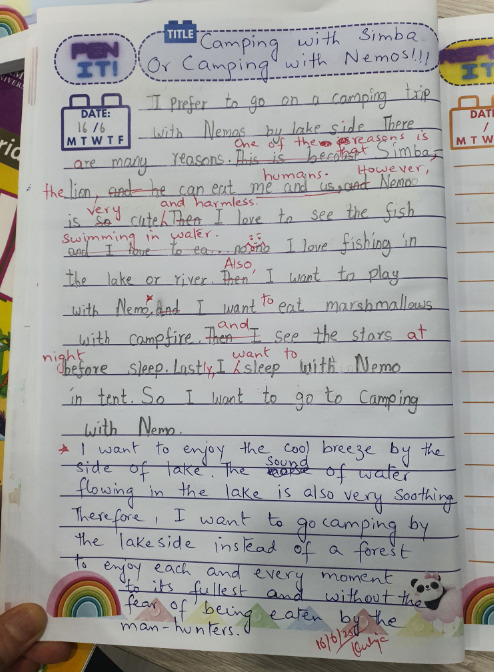 PEN IT!
TITLE Camping with Simba
Or Camping with Nemos!!!
DATE:
16/6
M T W T F
I Prefer to go on a camping trip
with Nemos by lake side There
One of the reasons is
are many reasons. This is because that Simba,
humans. However,
the lion, and he can eat me and us, and Nemo
very and harmless.
is so cute Then I love to see the fish
swimming in water.
and I love to ea... I love fishing in
Also,
the lake or river. Then I want to play
with Nemo, and I want to eat marshmallows
and
with campfire. Then I see the stars at
night want to
before sleep. Lastly, I sleep with Nemo
in tent. So I want to go to Camping
with Nemo.
* I want to enjoy the cool breeze by the
sound
side of lake. The noise of water
flowing in the lake is also very soothing
Therefore, I want to go camping by
the lakeside instead of a forest
to enjoy each and every moment
to its fullest and without the
fear of being eaten by the
man-hunters.
16/6/25
DATE
M T W